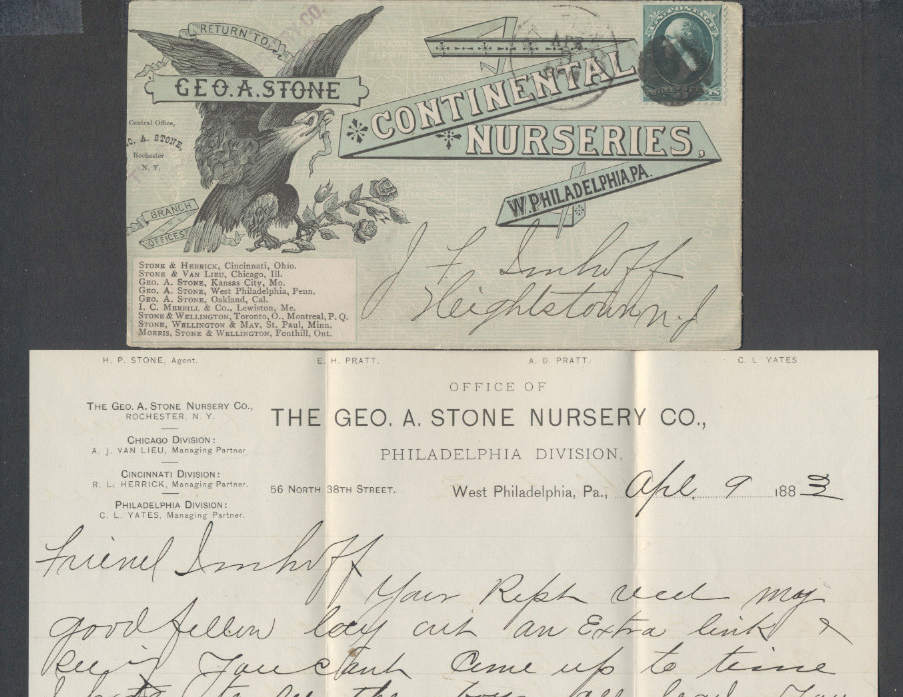 RETURN TO
GEO. A. STONE
Central Office,
A. STONE,
Rochester
N. Y.
BRANCH
OFFICES
CONTINENTAL
NURSERIES,
W. PHILADELPHIA, PA.
STONE & HERRICK, Cincinnati, Ohio.
STONE & VAN LIEU, Chicago, Ill.
GEO. A. STONE, Kansas City, Mo.
GEO. A. STONE, West Philadelphia, Penn.
GEO. A. STONE, Oakland, Cal.
I. C. MERRILL & CO., Lewiston, Me.
STONE & WELLINGTON, Toronto, O., Montreal, P. Q.
STONE, WELLINGTON & MAY, St. Paul, Minn.
MORRIS, STONE & WELLINGTON, Fonthill, Ont.
J F Imhoff
Heightstown N. J
H. P. STONE, Agent. E. H. PRATT. A. D. PRATT. C. L YATES
OFFICE OF
THE GEO. A. STONE NURSERY CO.,
PHILADELPHIA DIVISION,
THE GEO. A. STONE NURSERY CO.,
ROCHESTER, N. Y.
CHICAGO DIVISION:
A. J. VAN LIEU, Managing Partner
CINCINNATI DIVISION:
R. L. HERRICK, Managing Partner.
PHILADELPHIA DIVISION:
C. L. YATES, Managing Partner.
56 NORTH 38TH STREET. West Philadelphia, Pa., Apl. 9 188
Friend Imhoff
Your Rept recd my
good fellow lay out an Extra link &
You cant Come up to time
to the boys all You